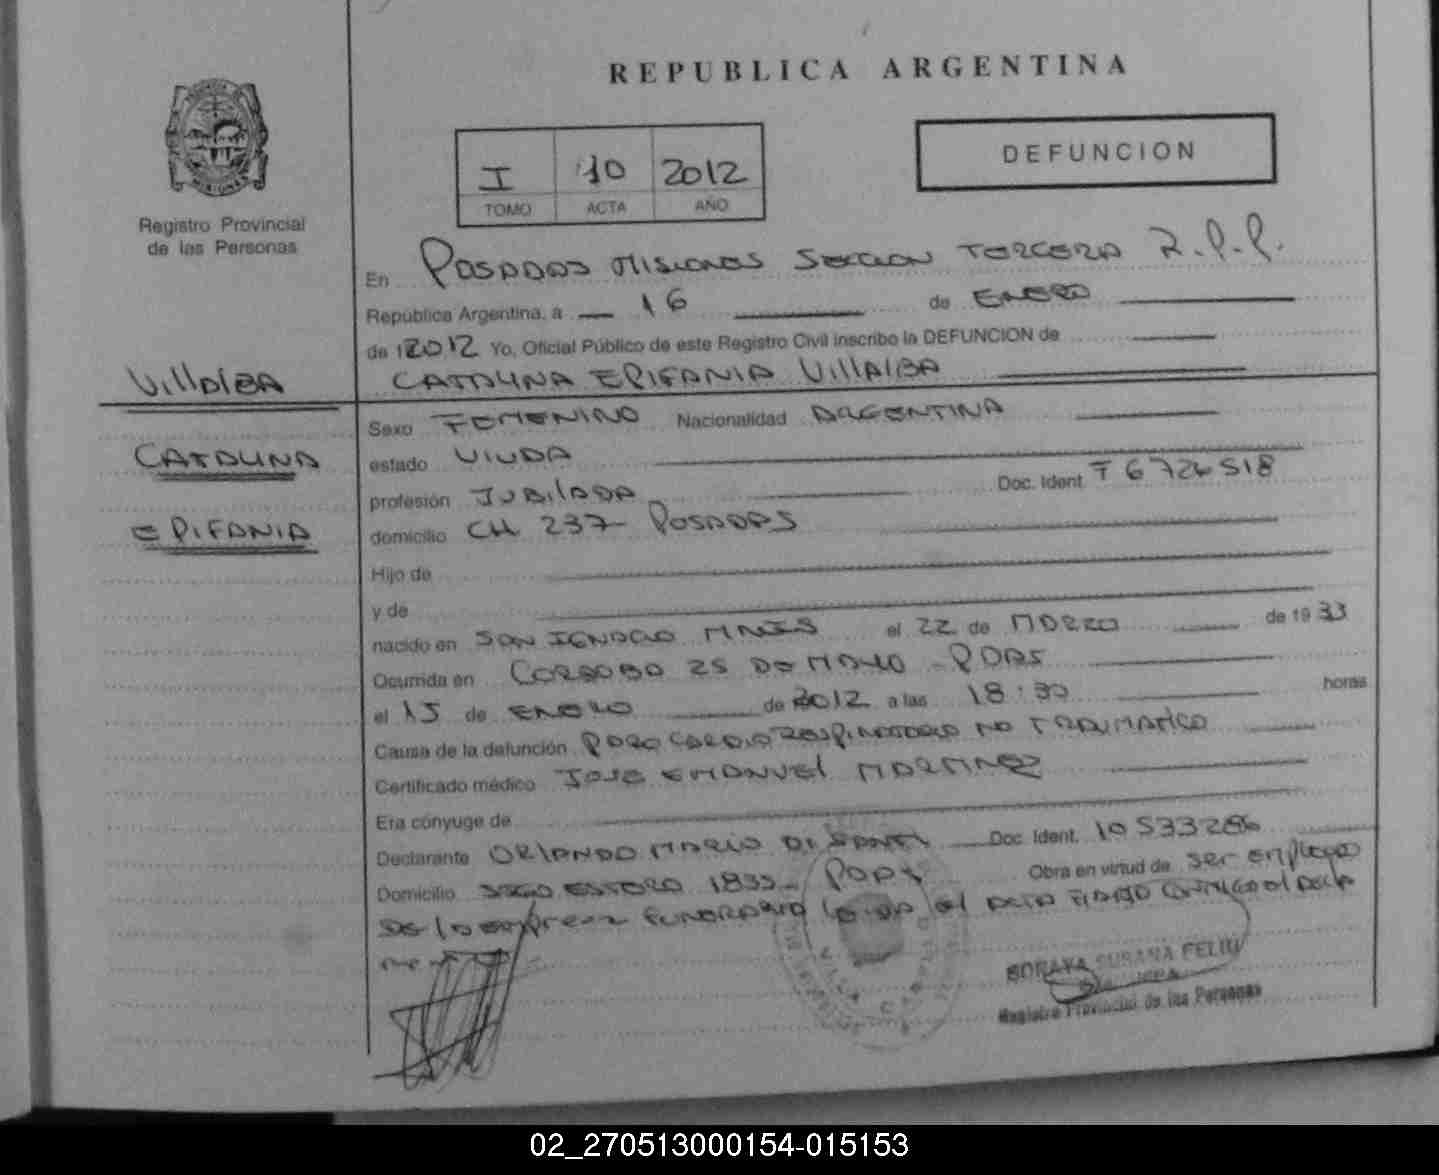 REPUBLICA ARGENTINA
Registro Provincial
de las Personas
I 10 2012
TOMO ACTA AÑO
DEFUNCION
En POSADAS MISIONES SECCION TERCERA R.P.P.
República Argentina, a 16 de ENERO
de 12012 Yo, Oficial Público de este Registro Civil inscribo la DEFUNCION de
CATALINA EPIFANIA VILLALBA
VILLALBA
CATALINA
EPIFANIA
Sexo FEMENINO Nacionalidad ARGENTINA
estado VIUDA
profesión JUBILADA Doc. Ident. F 6726518
domicilio CH 237 POSADAS
Hijo de
y de
nacido en SAN IGNACIO MNES el 22 de MARZO de 1933
Ocurrida en CORDOBA 25 DE MAYO - PDAS
el 15 de ENERO de 2012 a las 18:30 horas
Causa de la defunción PARO CARDIO RESPIRATORIO NO TRAUMATICO
Certificado médico JOSE EMANUEL MARTINEZ
Era cónyuge de
Declarante ORLANDO MARIO Doc. Ident. 10533286
Domicilio SGO ESTERO 1833 - PDAS Obra en virtud de ser empleado
de la empresa FUNERARIA el ACTA FIRMO CONMIGO el DECLA
SORAYA SUSANA FELIU
Registro Provincial de las Personas
02_270513000154-015153